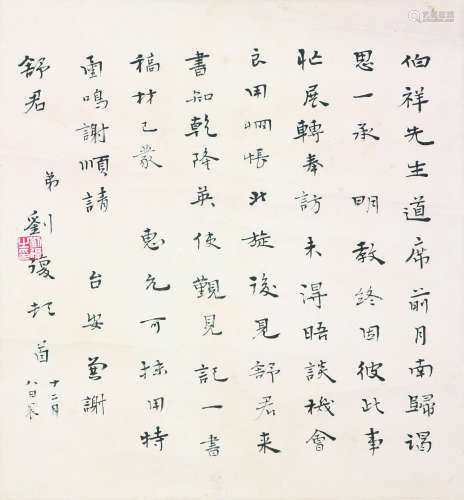 伯祥先生道席前月南歸渴
思一承 明教終因彼此事
忙展轉奉訪未得晤談機會
良用惆悵北旋後見舒君来
書知乾隆英使觐見記一書
稿材已蒙 惠允可採用特
函鳴謝順請 台安並謝
舒君
弟劉復頓首 十二月
八日晨